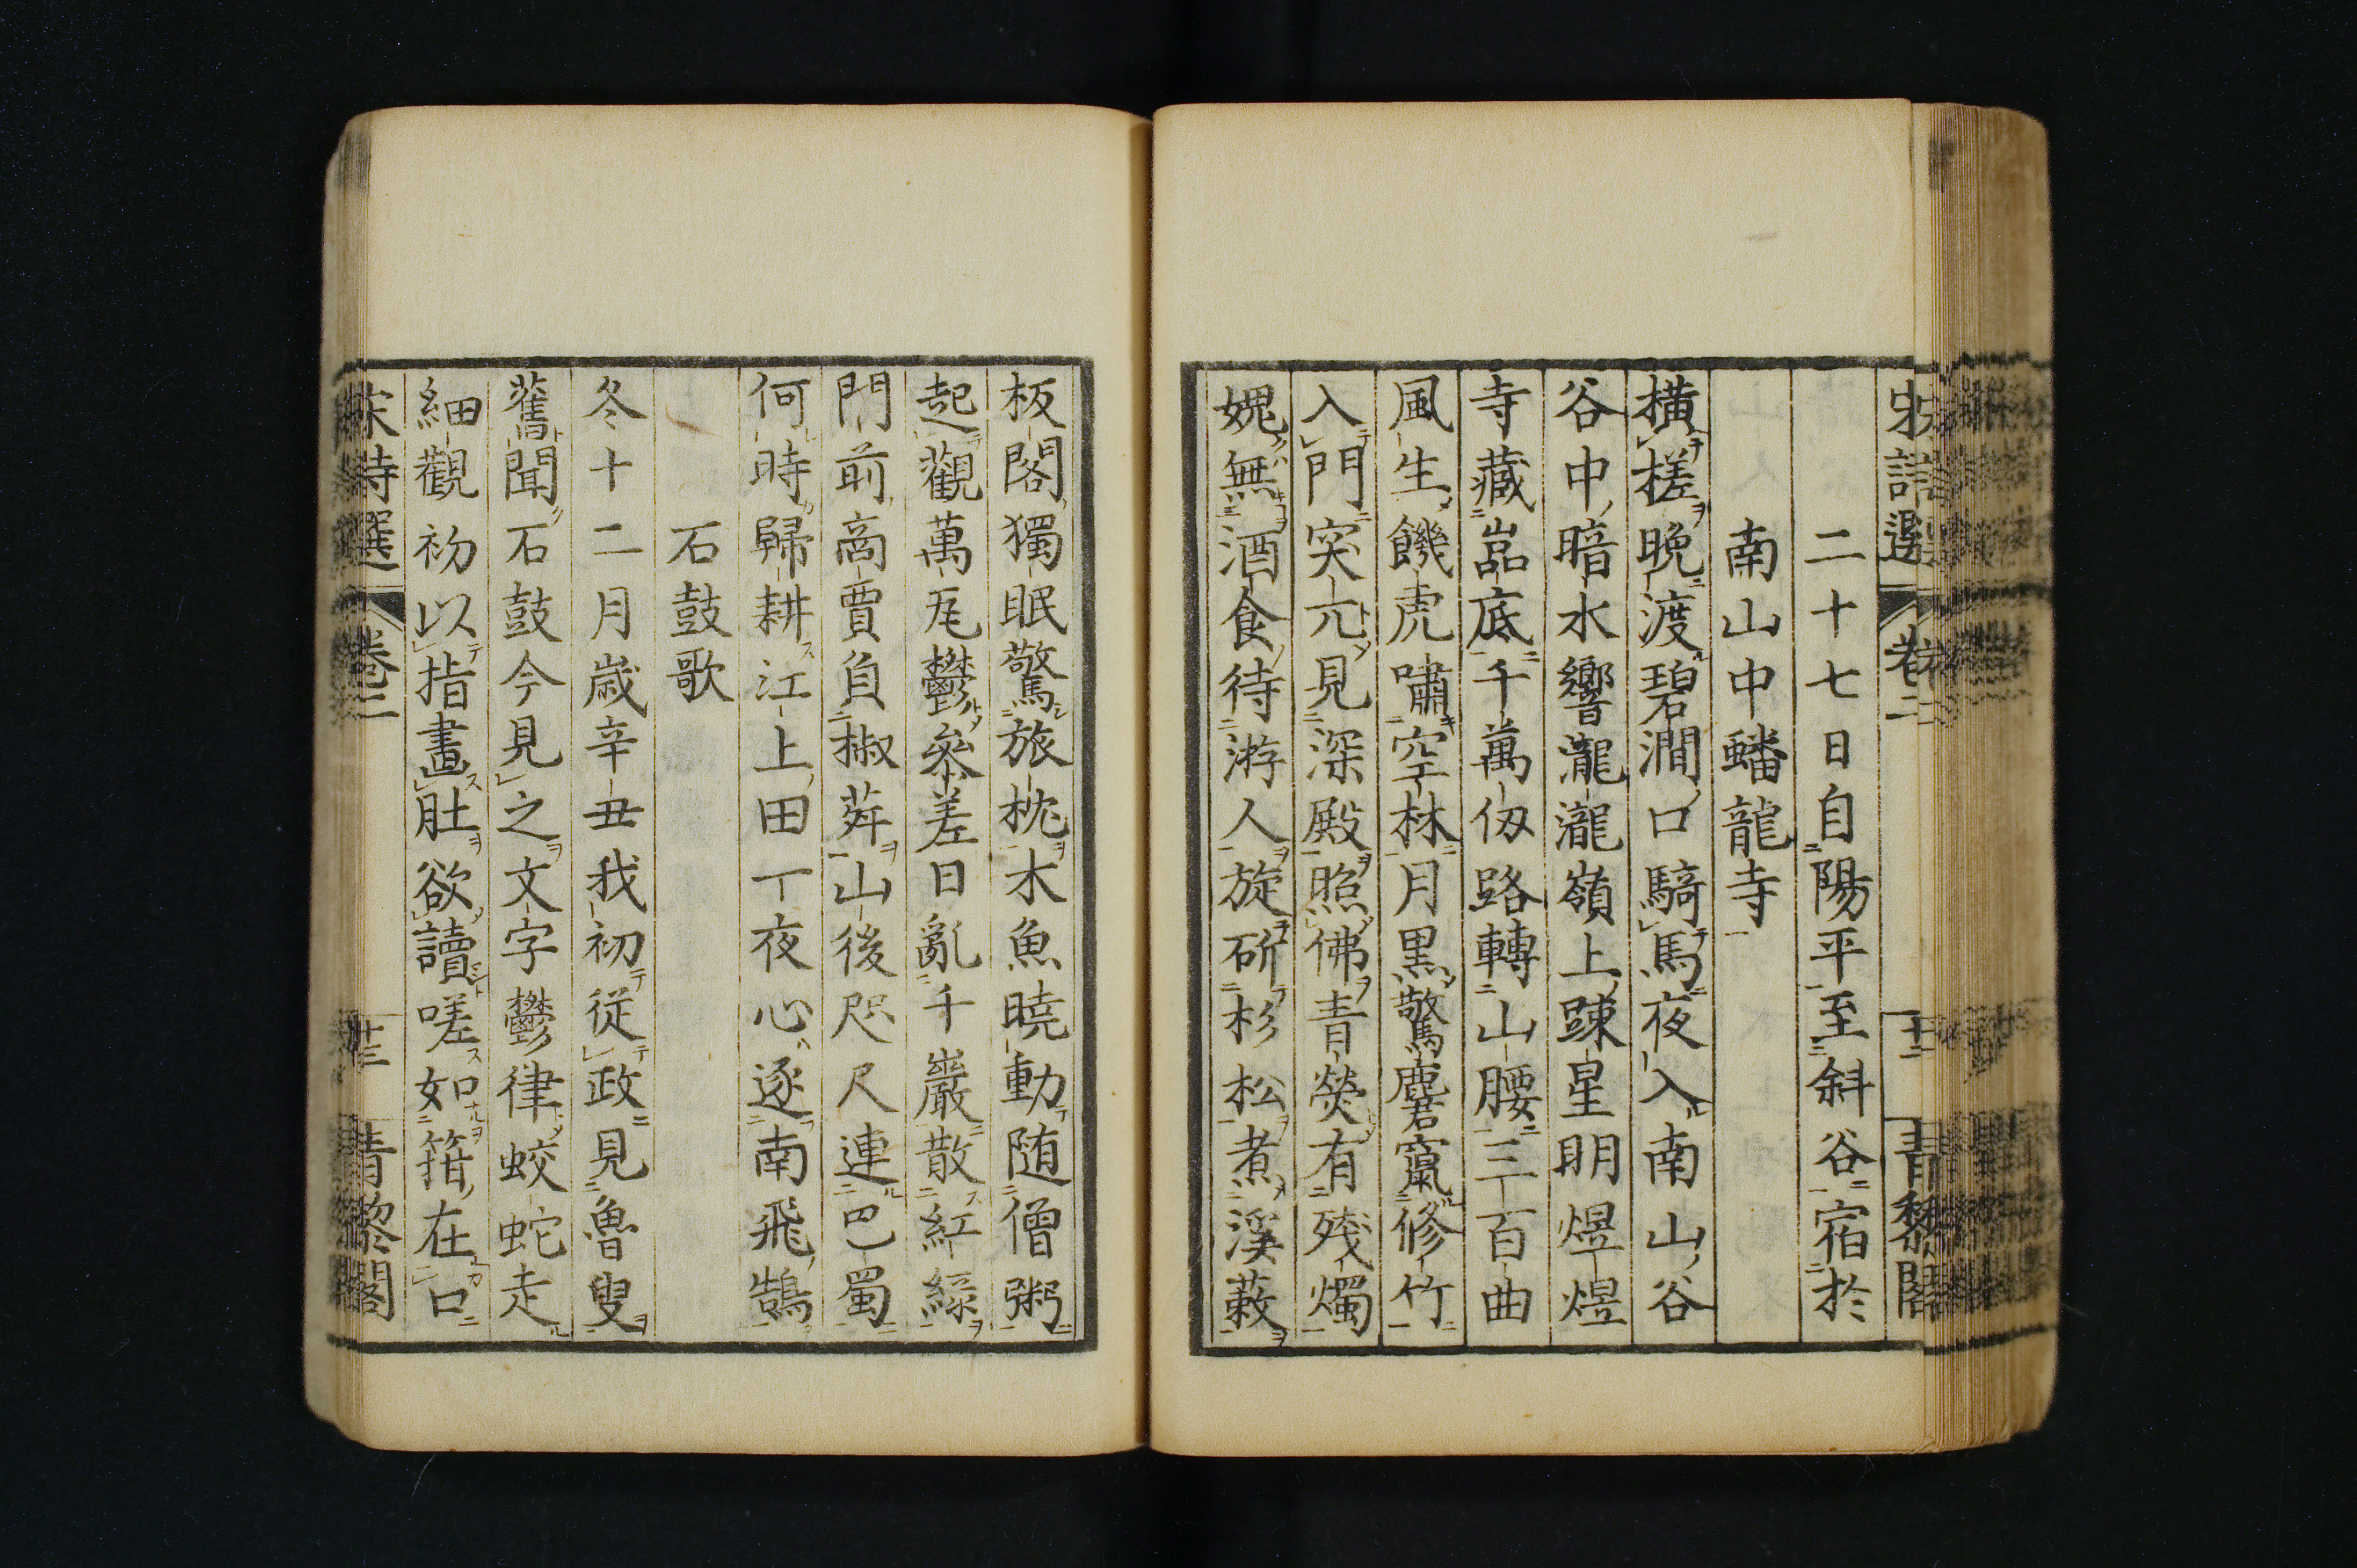 宋詩選 卷二 十二 青黎閣
二十七日自陽平至斜谷宿於
南山中蟠龍寺
橫槎晚渡碧澗口騎馬夜入南山谷
谷中暗水響瀧瀧嶺上踈星明煜煜
寺藏嵓底千萬仭路轉山腰三百曲
風生饑虎嘯空林月黑驚麏竄修竹
入門突兀見深殿照佛青熒有殘燭
媿無酒食待游人旋斫杉松煮溪蔌
板閣獨眠驚旅枕木魚曉動随僧粥
起觀萬瓦鬱參差日亂千巖散紅綠
門前商賈負椒荈山後咫尺連巴蜀
何時歸耕江上田一夜心逐南飛鵠
石鼓歌
冬十二月歳辛丑我初從政見魯叟
舊聞石鼓今見之文字鬱律蛟蛇走
細觀初以指畫肚欲讀嗟如箝在口
宋詩選 卷二 十三 青黎閣